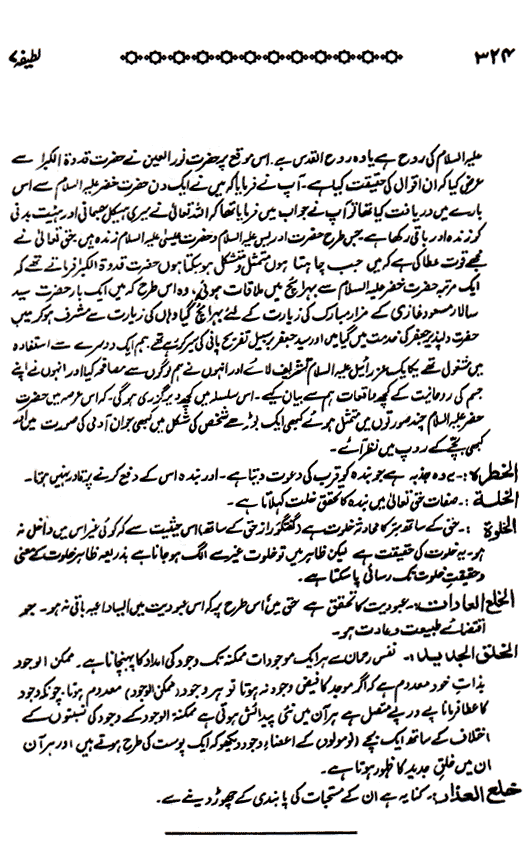 ۳۲۴ لطیفہ ۷
علیہ السلام کی روح ہے یا وہ روح القدس ہے۔ اس موقع پر حضرت نور العین نے حضرت قدوۃ الکبرا سے
عرض کیا کہ ان اقوال کی حقیقت کیا ہے۔ آپ نے فرمایا کہ میں نے ایک دن حضرت خضر علیہ السلام سے اس
بارے میں دریافت کیا تھا تو آپ نے جواب میں فرمایا تھا کہ اللہ تعالیٰ نے میری ہیکل جسمانی اور ہئیت بدنی
کو زندہ اور باقی رکھا ہے۔ جس طرح حضرت ادریس علیہ السلام و حضرت عیسیٰ علیہ السلام زندہ ہیں۔ حق تعالیٰ نے
مجھے قوت عطا کی ہے کہ میں جیسے چاہتا ہوں متمثل و متشکل ہو سکتا ہوں حضرت قدوۃ الکبرا فرماتے تھے کہ
ایک مرتبہ حضرت خضر علیہ السلام سے بہرائچ میں ملاقات ہوئی، وہ اس طرح کہ میں ایک بار حضرت سید
سالار مسعود غازی کے مزار مبارک کی زیارت کے لئے بہرائچ گیا وہاں کی زیارت سے مشرف ہو کر میں
حضرت دلپذیر جعفر کی خدمت میں گیا میں اور سید جعفر برسبیل تفریح پانی کی سیر کر رہے تھے ہم ایک دوسرے سے استفادہ
میں مشغول تھے یکایک عزرائیل علیہ السلام تشریف لائے اور انہوں نے ہم لوگوں سے مصافحہ کیا اور انہوں نے اپنے
جسم کی روحانیت کے کچھ واقعات ہم سے بیان کیے۔ اس سلسلہ میں کچھ دیر گزری ہوگی۔ کہ اس عرصہ میں حضرت
خضر علیہ السلام چند صورتوں میں متمثل ہوئے کبھی ایک بوڑھے شخص کی شکل میں کبھی جوان آدمی کی صورت میں اور
کبھی بچے کے روپ میں نظر آئے۔
الخطرۃ :۔ یہ وہ جذبہ ہے جو بندہ کو قرب کی دعوت دیتا ہے۔ اور بندہ اس کے دفع کرنے پر قادر نہیں ہوتا۔
الخلۃ :۔ صفات حق تعالیٰ میں بندہ کا تحقق خلت کہلاتا ہے۔
الخلوۃ :۔ حق کے ساتھ سر کا محادثہ خلوت ہے (گفتگو راز حق کے ساتھ) اس حیثیت سے کہ کوئی غیر اس میں داخل نہ
ہو۔ یہ خلوت کی حقیقت ہے لیکن ظاہر میں تو خلوت غیر سے الگ ہو جانا ہے بذریعہ ظاہر خلوت کے معنی
و حقیقت خلوت تک رسائی پا سکتا ہے۔
الخلع العادات :۔ عبودیت کا تحقق ہے حق میں اس طرح پر کہ اس عبودیت میں ایسا داعیہ باقی نہ ہو۔ جو
اقتضائے طبیعت و عادت ہو۔
الخلق الجدید :۔ نفس رحمان سے ہر ایک موجودات ممکنہ تک وجود کی امداد کا پہنچانا ہے۔ ممکن الوجود
بذات خود معدوم ہے کہ اگر موجد کا فیض وجود نہ ہوتا تو ہر وجود (ممکن الوجود) معدوم ہوتا، چونکہ وجود
کا عطا فرمانا پے در پے متصل ہے ہر آن میں نئی پیدائش ہوتی ہے ممکنۃ الوجود کے وجود کی نسبتوں کے
اختلاف کے ساتھ ایک بچے (نومولود) کے اعضاء وجود دیکھو کہ ایک پوست کی طرح ہوتے ہیں اور ہر آن
ان میں خلق جدید کا ظہور ہوتا ہے۔
خلع العذار :۔ کنایہ ہے ان کے مستحبات کی پابندی کے چھوڑ دینے سے۔